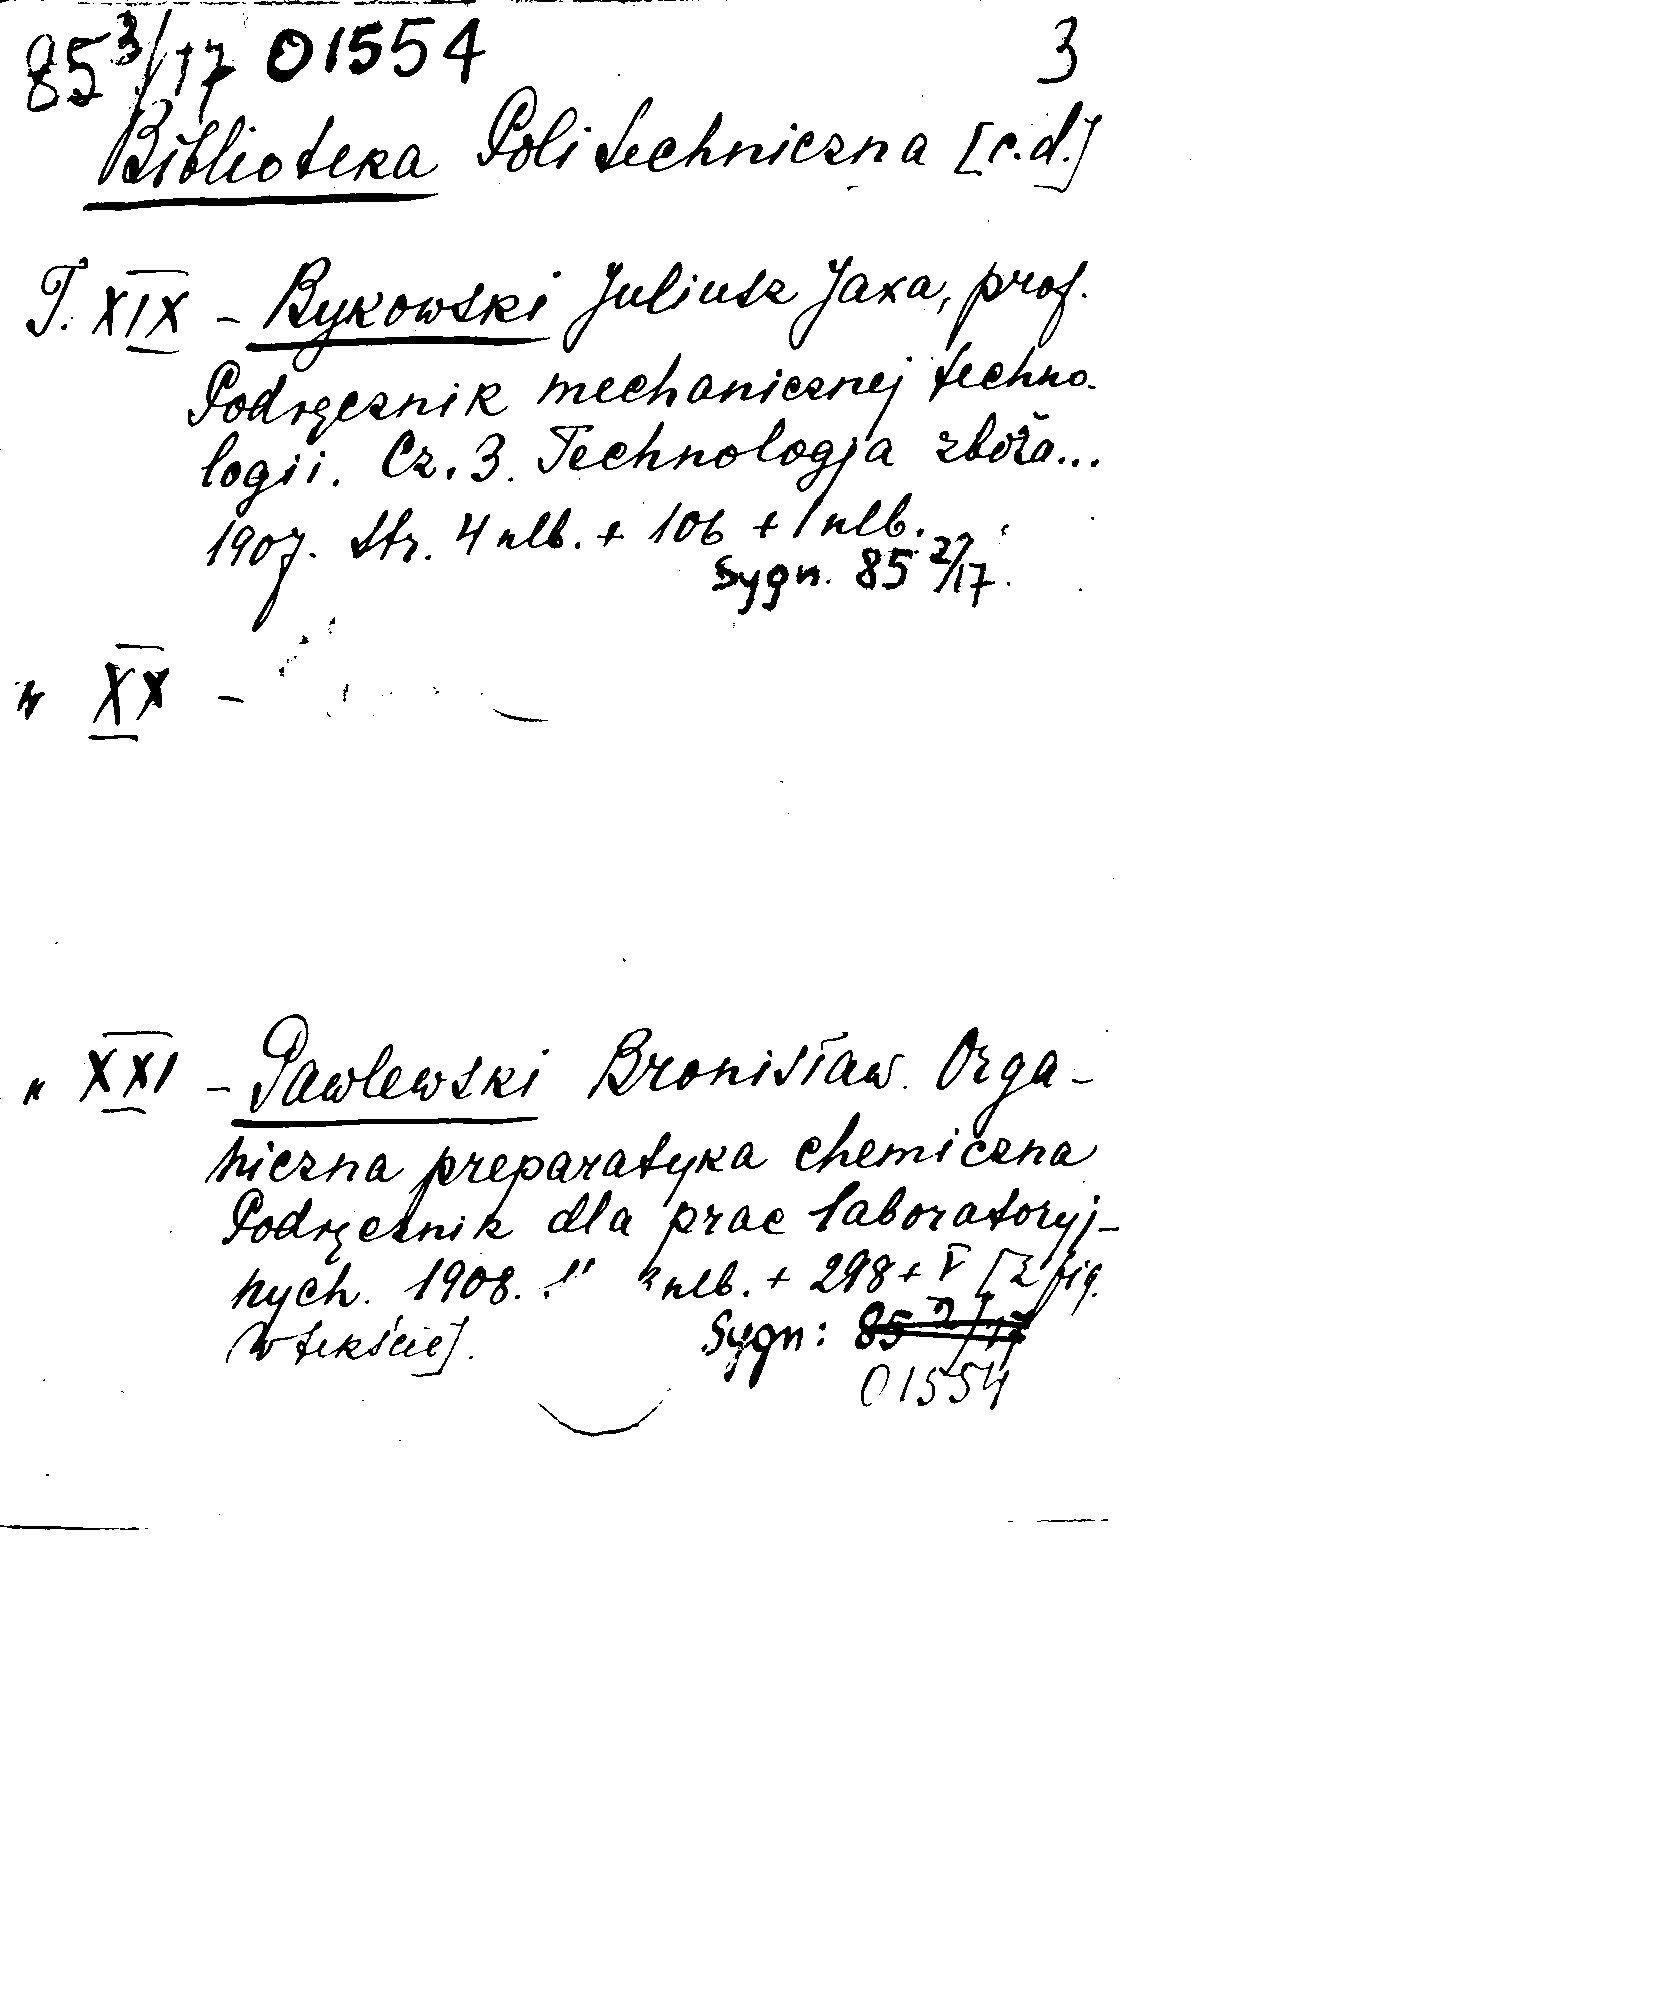 85 3/17 01554 3
Biblioteka Politechniczna [c.d.]
T. XIX - Bykowski Juliusz Jaxa, prof.
Podręcznik mechanicznej techno-
logii. Cz. 3. Technologja zboża...
1907. Str. 4 nlb. + 106 + 1 nlb.
Sygn. 85 2/17.
" XX -
" XXI - Pawlewski Bronisław. Orga-
niczna preparatyka chemiczna
Podręcznik dla prac laboratoryj-
nych. 1908. nlb. + 298 + V [z fig.
w tekście].
Sygn: 85 2/17
01554